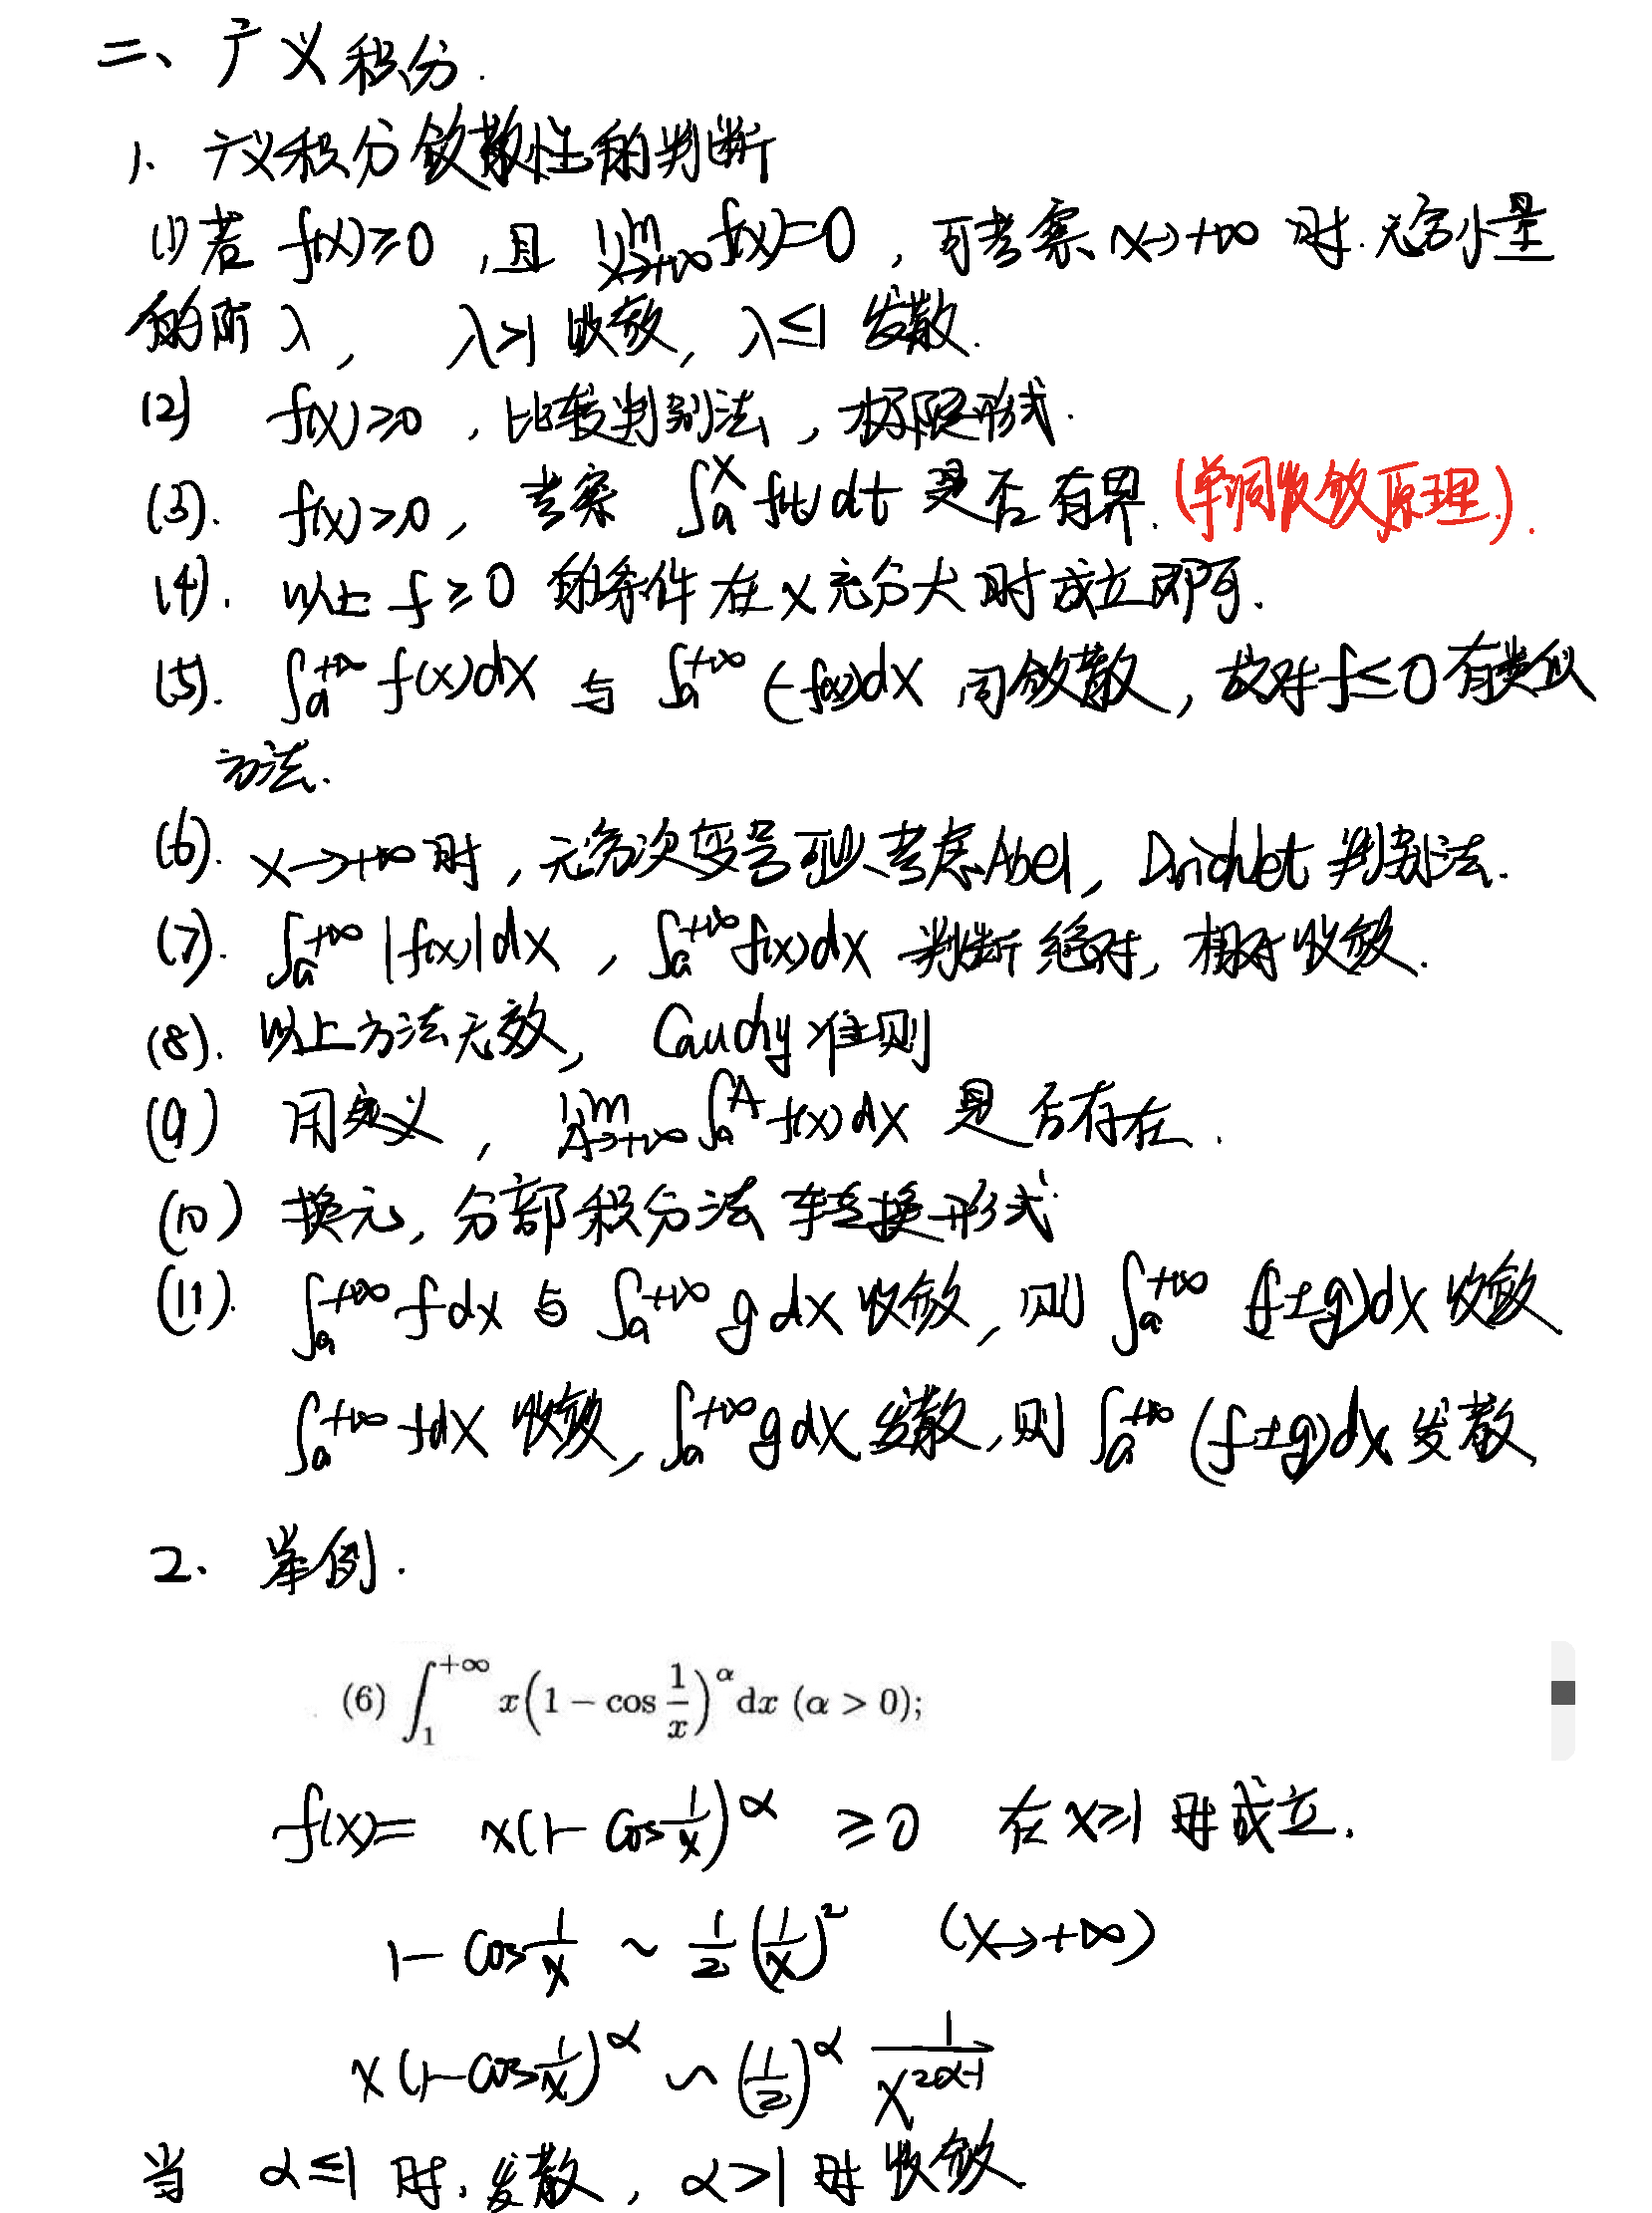 二、广义积分.
1. 广义积分敛散性的判断
(1) 若 f(x)≥0，且 lim_{x→+∞} f(x)=0，可考察 x→+∞ 时.无穷小量
的阶 λ， λ>1 收敛，λ≤1 发散.
(2) f(x)≥0，比较判别法，极限形式.
(3). f(x)≥0，考察 ∫_a^x f(t)dt 是否有界.(单调收敛原理.).
(4). 以上 f≥0 的条件在 x 充分大时成立即可.
(5). ∫_a^{+∞} f(x)dx 与 ∫_a^{+∞} (-f(x))dx 同敛散，故对 f≤0 有类似
方法.
(6). x→+∞ 时，无穷次变号可以考虑Abel，Dirichlet 判别法.
(7). ∫_a^{+∞} |f(x)|dx，∫_a^{+∞} f(x)dx 判断绝对，相对收敛.
(8). 以上方法无效，Cauchy准则
(9) 用定义，lim_{A→+∞} ∫_a^A f(x)dx 是否存在.
(10) 换元，分部积分法 转换形式
(11). ∫_a^{+∞} f dx 与 ∫_a^{+∞} g dx 收敛，则 ∫_a^{+∞} (f±g)dx 收敛
∫_a^{+∞} f dx 收敛，∫_a^{+∞} g dx 发散，则 ∫_a^{+∞} (f±g)dx 发散
2. 举例.
(6) ∫_1^{+∞} x(1 − cos 1/x)^α dx (α > 0);
f(x)= x(1- cos 1/x)^α ≥0 在 x≥1 时成立.
1- cos 1/x ~ 1/2 (1/x)^2 (x→+∞)
x(1-cos 1/x)^α ~ (1/2)^α 1/x^{2α-1}
当 α≤1 时.发散，α>1 时收敛.